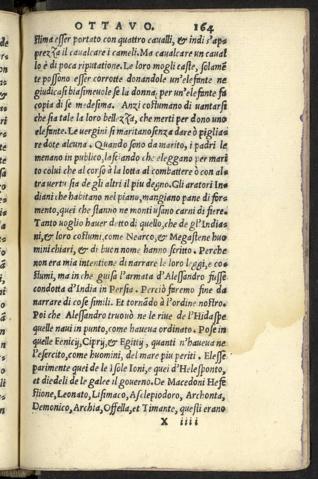 OTTAVO. 164
stima esser portato con quattro cavalli, & indi s'ap
prezza il cavalcare i cameli. Ma cavalcare un caual
lo è di poca riputatione. Le loro mogli caste, solamē
te possono esser corrotte donandole un'elefante ne
giudicasi biasimeuole se la donna, per un'elefante fa
copia di se medesima. Anzi costumano di uantarsi
che sia tale la loro bellezza, che merti per dono uno
elefante. Le uergini si maritano senza dare ò piglia=
re dote alcuna. Quando sono da marito, i padri le
menano in publico, lasciando che eleggano per mari
to colui che al corso à la lotta al combattere ò con al=
tra uertu sia de gli altri il piu degno. Gli aratori In=
diani che habitano nel piano, mangiano pane di for=
mento, quei che stanno ne monti usano carni di fiere.
Tanto uoglio hauer detto di quello, che de gl'India=
ni, & loro costumi, come Nearco, & Megastene huo=
mini chiari, & di buon nome hanno scritto. Perche
non era mia intentione di narrare le loro leggi, e co=
stumi, ma in che guisa l'armata d'Alessandro fusse
condotta d'India in Persia. Perciò faremo fine da
narrare di cose simili. Et tornādo à l'ordine nostro.
Poi che Alessandro truouò ne le riue de l'Hidaspe
quelle naui in punto, come haueua ordinato. Pose in
quelle Fenicij, Ciprij, & Egittij, quanti n'haueua ne
l'esercito, come huomini, del mare piu periti. Elesse
parimente quei de l'isole Ioni, e quei d'Helesponto,
et diedeli de le galee il gouerno. De Macedoni Hefe
stione, Leonato, Lisimaco, Asclepiodoro, Archonta,
Demonico, Archia, Offella, et Timante, questi erano
X iiii